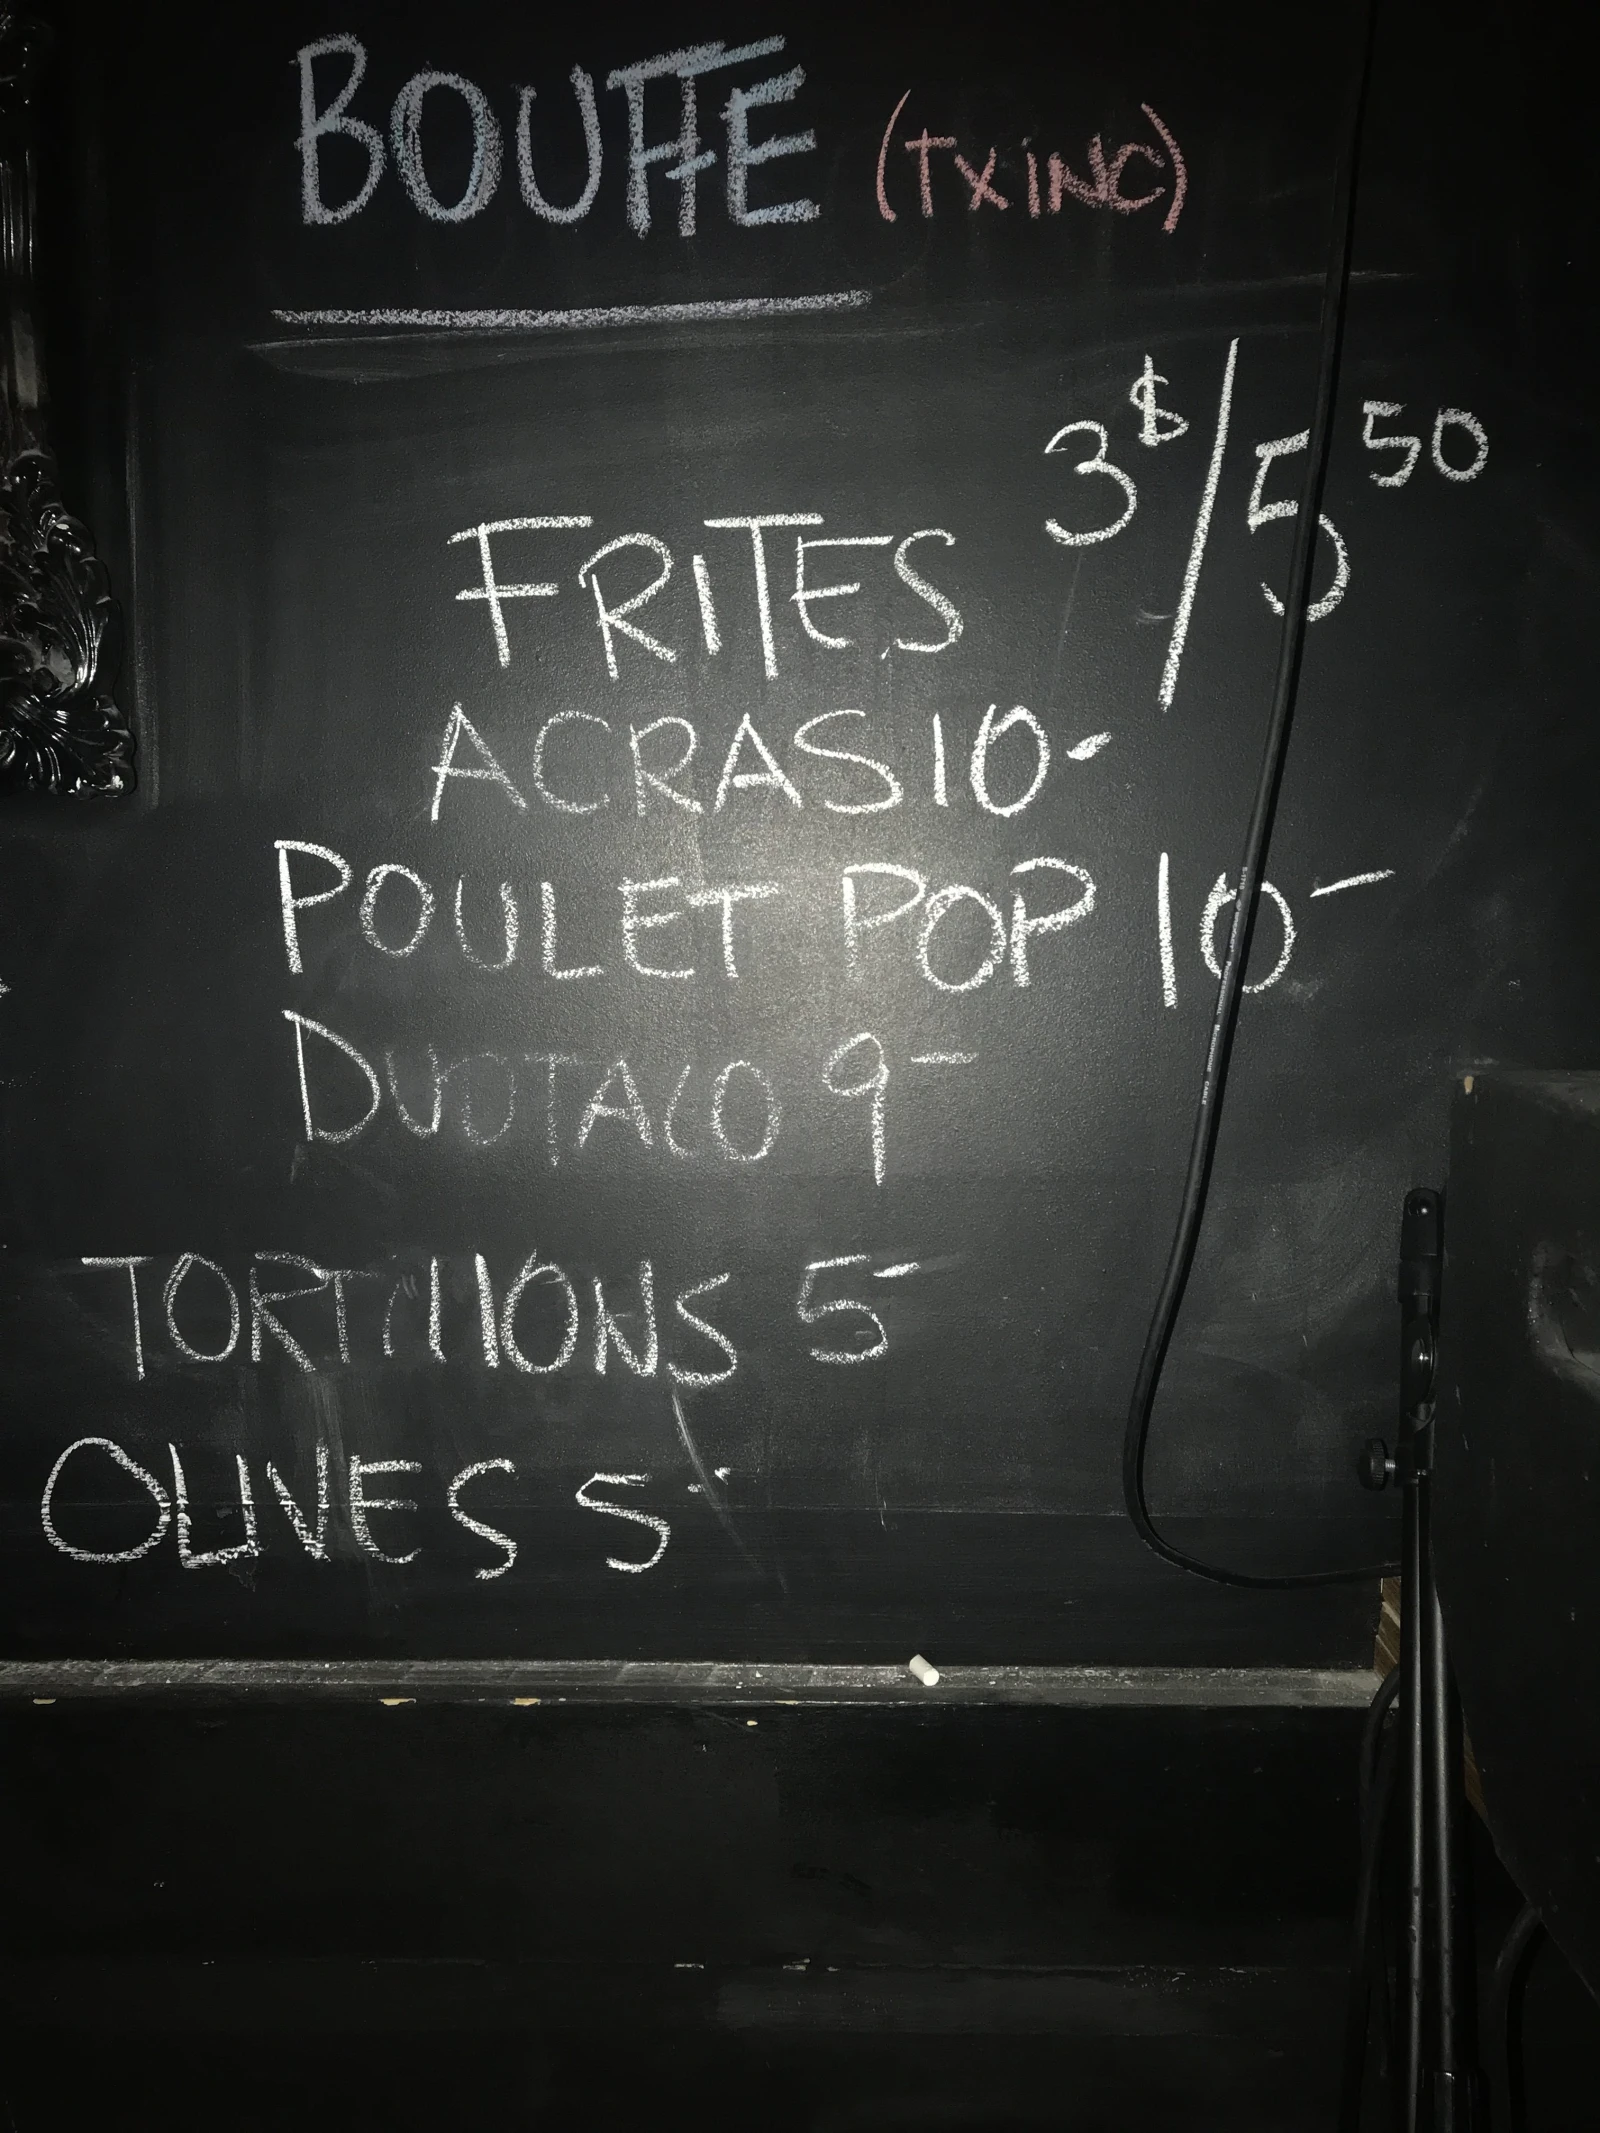 BOUFFE (TX INC)
FRITES 3$/5 50
ACRAS 10-
POULET POP 10-
DUOTACO 9-
TORTILLONS 5-
OLIVES 5-